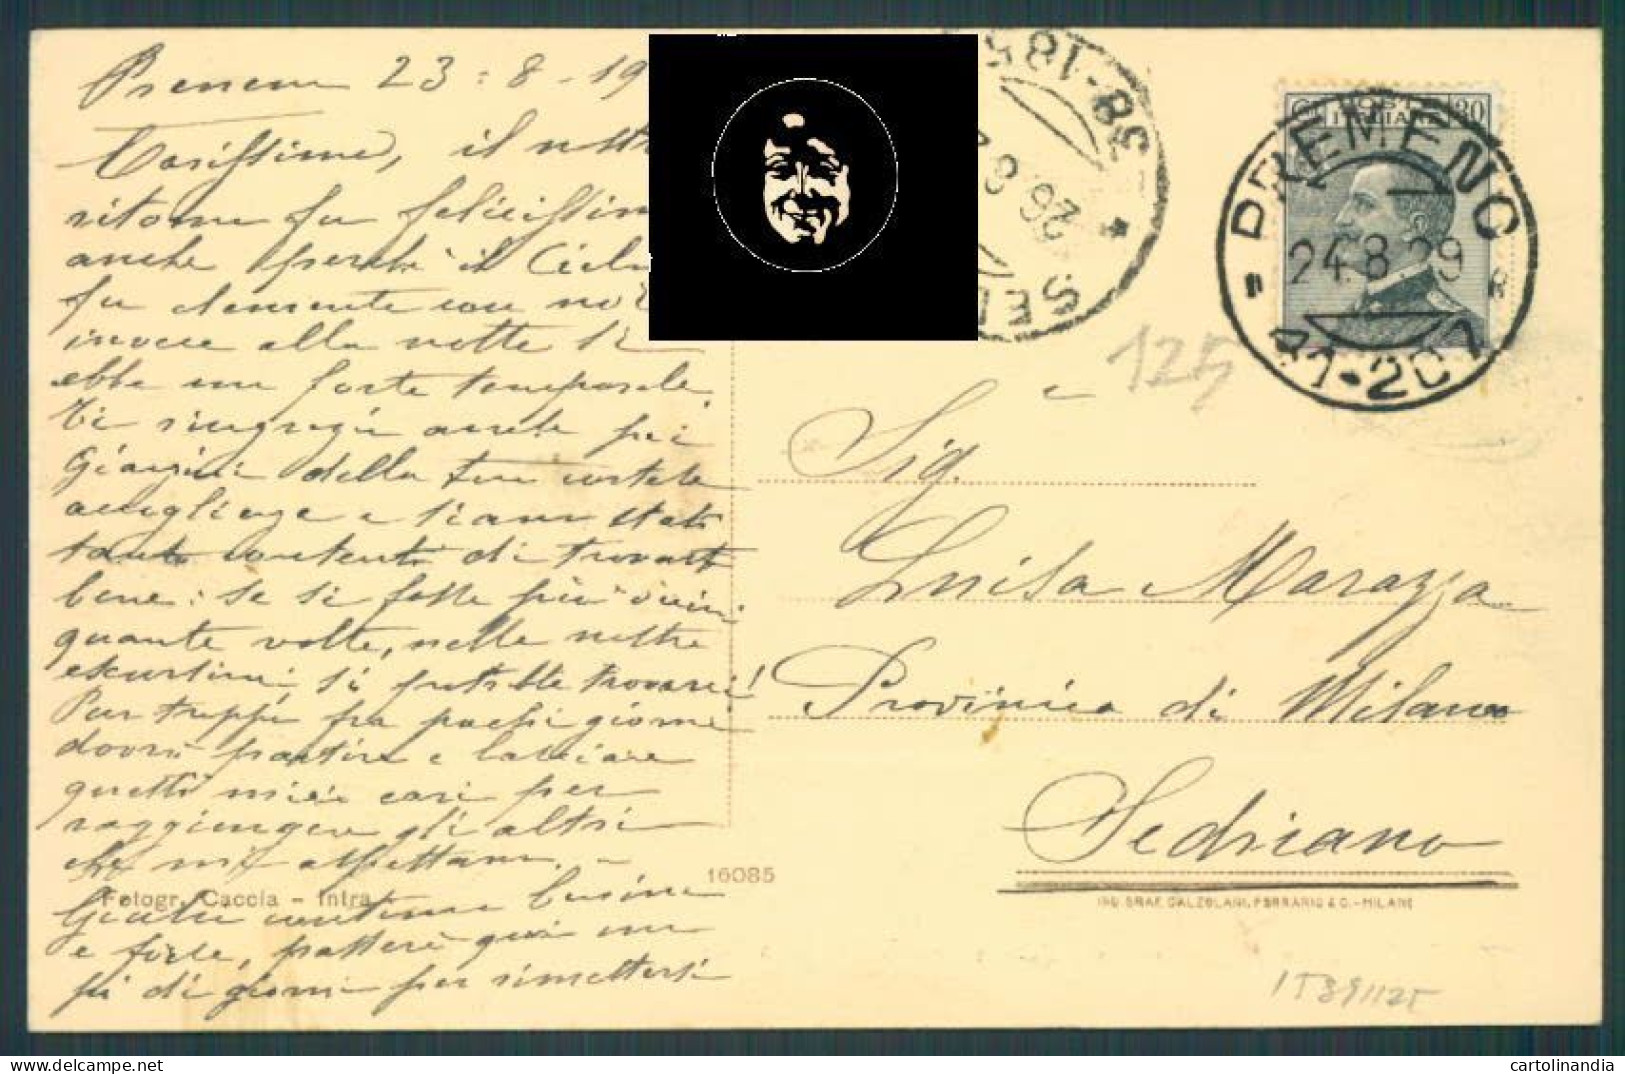 Premeno 23-8-19
Carissime, il nostro
ritorno fu felicissimo
anche perchè il Cielo
fu clemente con noi
invece alla notte si
ebbe un forte temporale.
Ti ringrazio anche pei
della tua cortese
accoglienza e siamo stati
tanto contenti di trovarti
bene: se si fosse più vicini
quante volte, nelle nostre
escursioni, si potrebbe trovarci!
Pur troppo fra pochi giorni
dovrò partire e lasciare
questi miei cari per
raggiungere gli altri
che mi aspettano. -
continua benino
e forse, passerà quì un
pò di giorni per rimettersi
Fotogr. Caccia - Intra
16085
38-185
26 8
SED
POSTE ITALIANE 30
PREMENO
24.8.29
125
Sig.
Luisa Marazza
Provincia di Milano
Sedriano
IND. GRAF. CALZOLARI, FERRARIO & C. - MILANO
cartolinandia